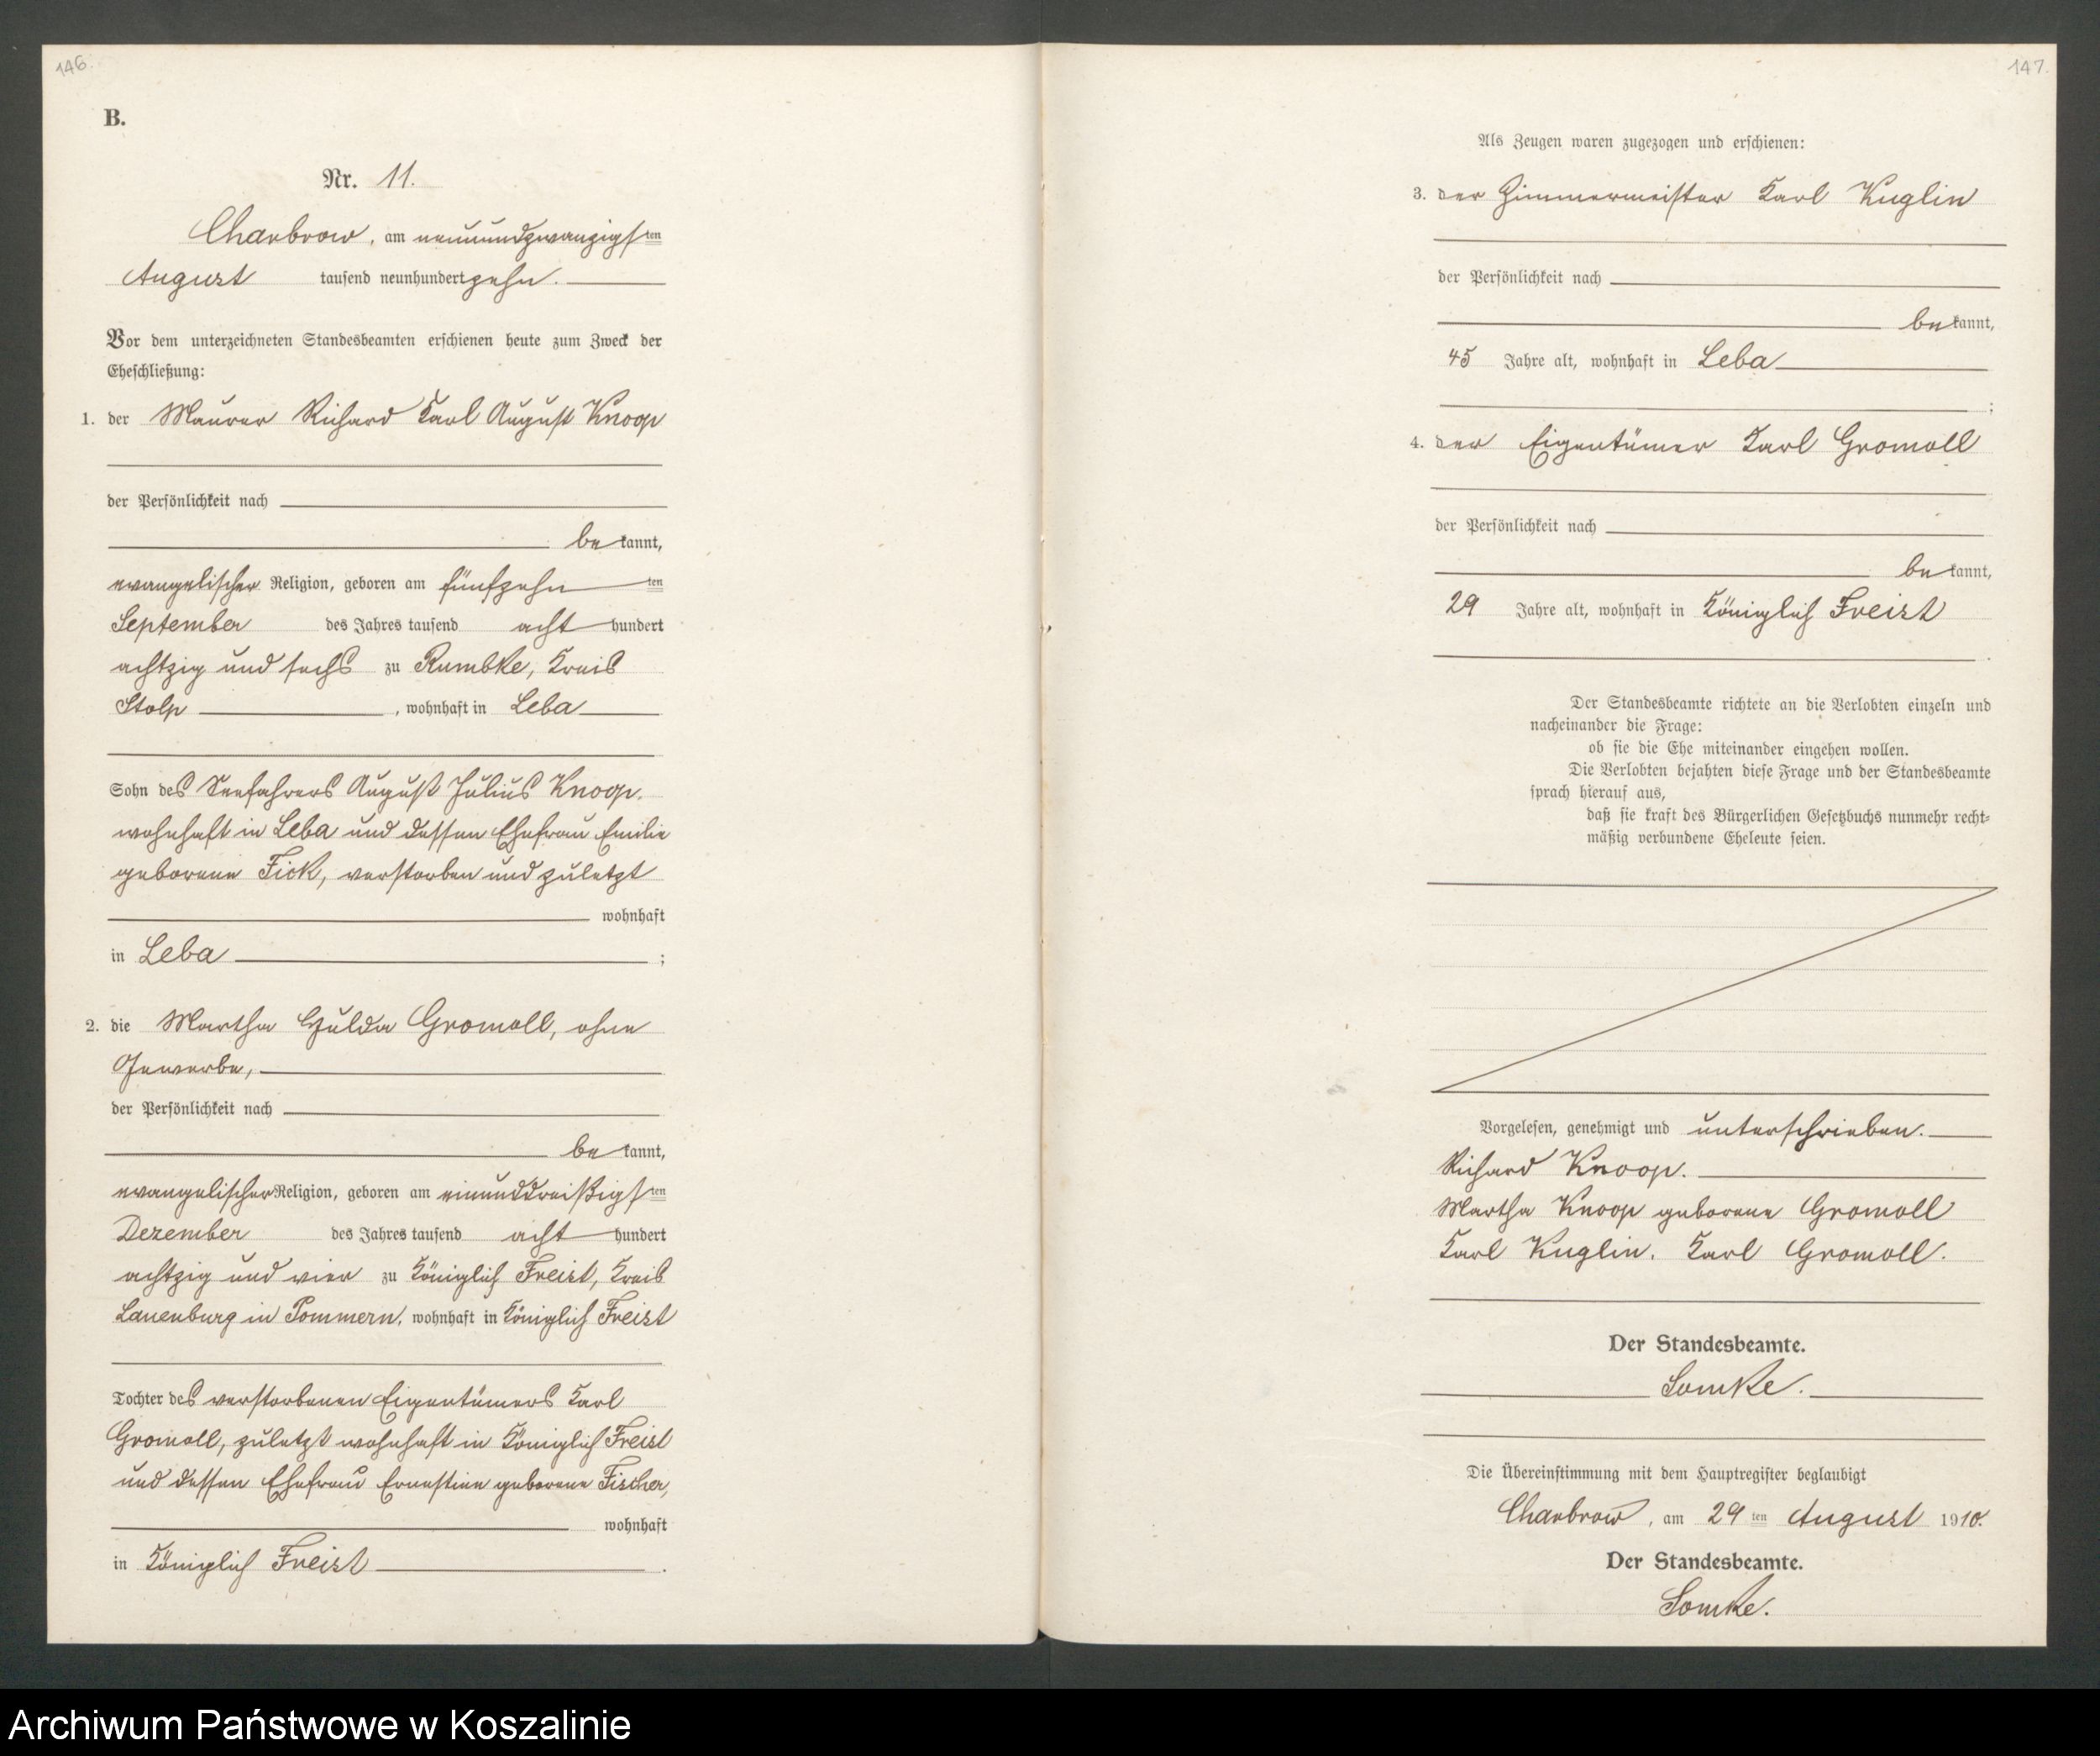 146.
B.
Nr. 11.
Charbrow, am neunundzwanzigsten
August tausend neunhundertzehn.
Vor dem unterzeichneten Standesbeamten erschienen heute zum Zweck der
Eheschließung:
1. der Maurer Richard Karl August Knoop
der Persönlichkeit nach
bekannt,
evangelischer Religion, geboren am fünfzehnten
September des Jahres tausend achthundert
achtzig und sechs zu Rumbke, Kreis
Stolp, wohnhaft in Leba
Sohn des Seefahrers August Julius Knoop.
wohnhaft in Leba und dessen Ehefrau Emilie
geborene Fick, verstorben und zuletzt
wohnhaft
in Leba;
2. die Martha Hulda Gromoll, ohne
Gewerbe,
der Persönlichkeit nach
bekannt,
evangelischer Religion, geboren am einunddreißigsten
Dezember des Jahres tausend achthundert
achtzig und vier zu Königlich Freist, Kreis
Lauenburg in Pommern, wohnhaft in Königlich Freist
Tochter des verstorbenen Eigentümers Karl
Gromoll, zuletzt wohnhaft in Königlich Freist
und dessen Ehefrau Ernestine geborene Fischer,
wohnhaft
in Königlich Freist.
147.
Als Zeugen waren zugezogen und erschienen:
3. der Zimmermeister Karl Kuglin
der Persönlichkeit nach
bekannt,
45 Jahre alt, wohnhaft in Leba
;
4. der Eigentümer Karl Gromoll
der Persönlichkeit nach
bekannt,
29 Jahre alt, wohnhaft in Königlich Freist
.
Der Standesbeamte richtete an die Verlobten einzeln und
nacheinander die Frage:
ob sie die Ehe miteinander eingehen wollen.
Die Verlobten bejahten diese Frage und der Standesbeamte
sprach hierauf aus,
daß sie kraft des Bürgerlichen Gesetzbuchs nunmehr recht-
mäßig verbundene Eheleute seien.
Vorgelesen, genehmigt und unterschrieben.
Richard Knoop.
Martha Knoop geborene Gromoll
Karl Kuglin. Karl Gromoll.
Der Standesbeamte.
Lomke.
Die Übereinstimmung mit dem Hauptregister beglaubigt
Charbrow, am 29ten August 1910.
Der Standesbeamte.
Lomke.
Archiwum Państwowe w Koszalinie